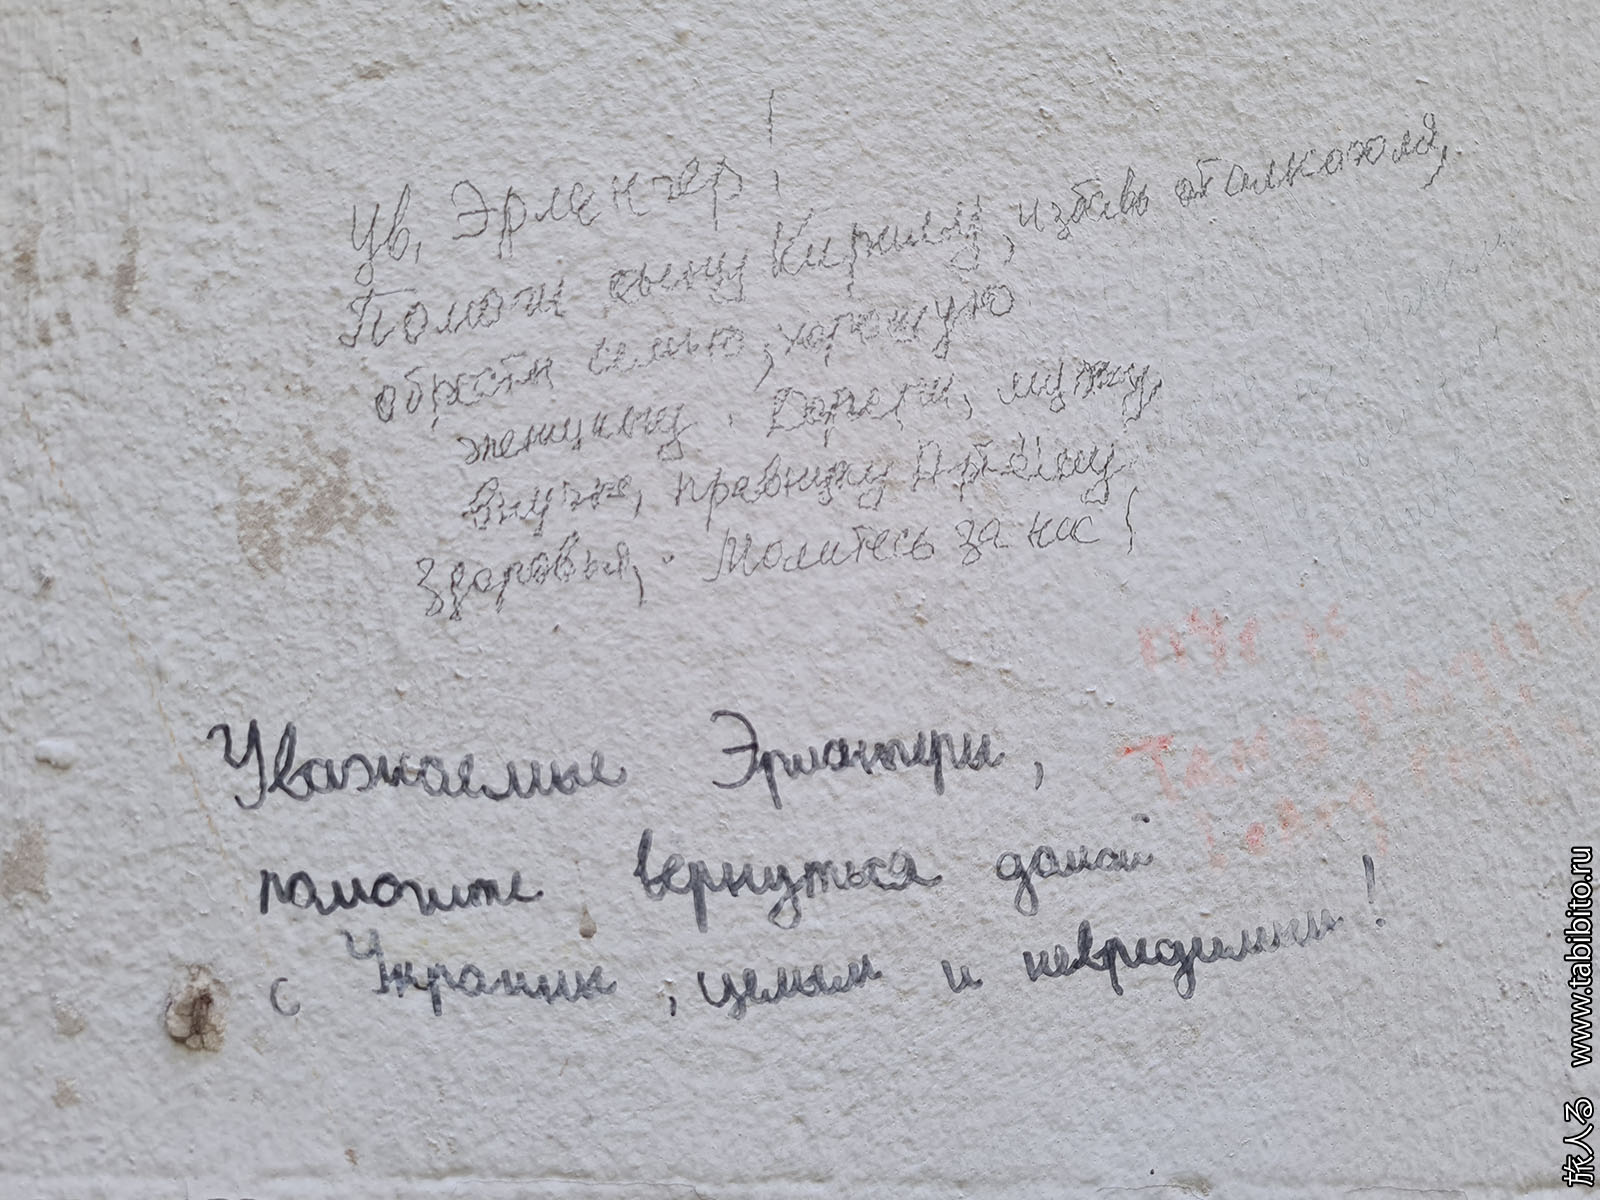 Ув. Эрленгер!
Помоги сыну Кириллу, избавь от алкоголя,
обрести семью, хорошую
женщину. Дочери, мужу,
внучке, правнуку Артёму
здоровья. Молитесь за нас!
Уважаемые Эрлангеры,
помогите вернуться домой
с Украины, целым и невредимым!
旅人る www.tabibito.ru